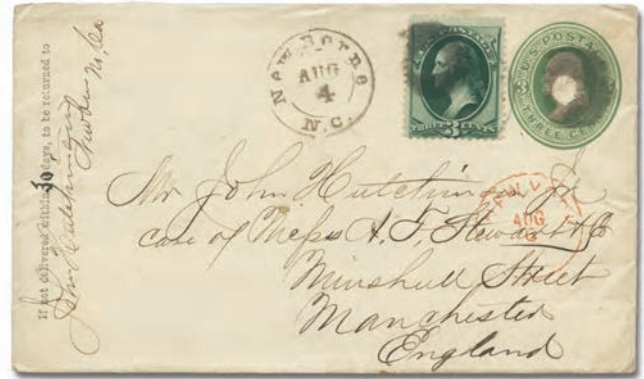 If not delivered within 30 days, to be returned to
John Hutchinson
New Berne
New Berne
AUG
4
N.C.
U.S. POSTAGE
THREE 3 CENTS
U.S. POSTAGE
3
3
THREE CENTS
Mr John Hutchinson Jr
care of Messrs A. T. Stewart & Co
Minshull Street
Manchester
England
PAID
AUG